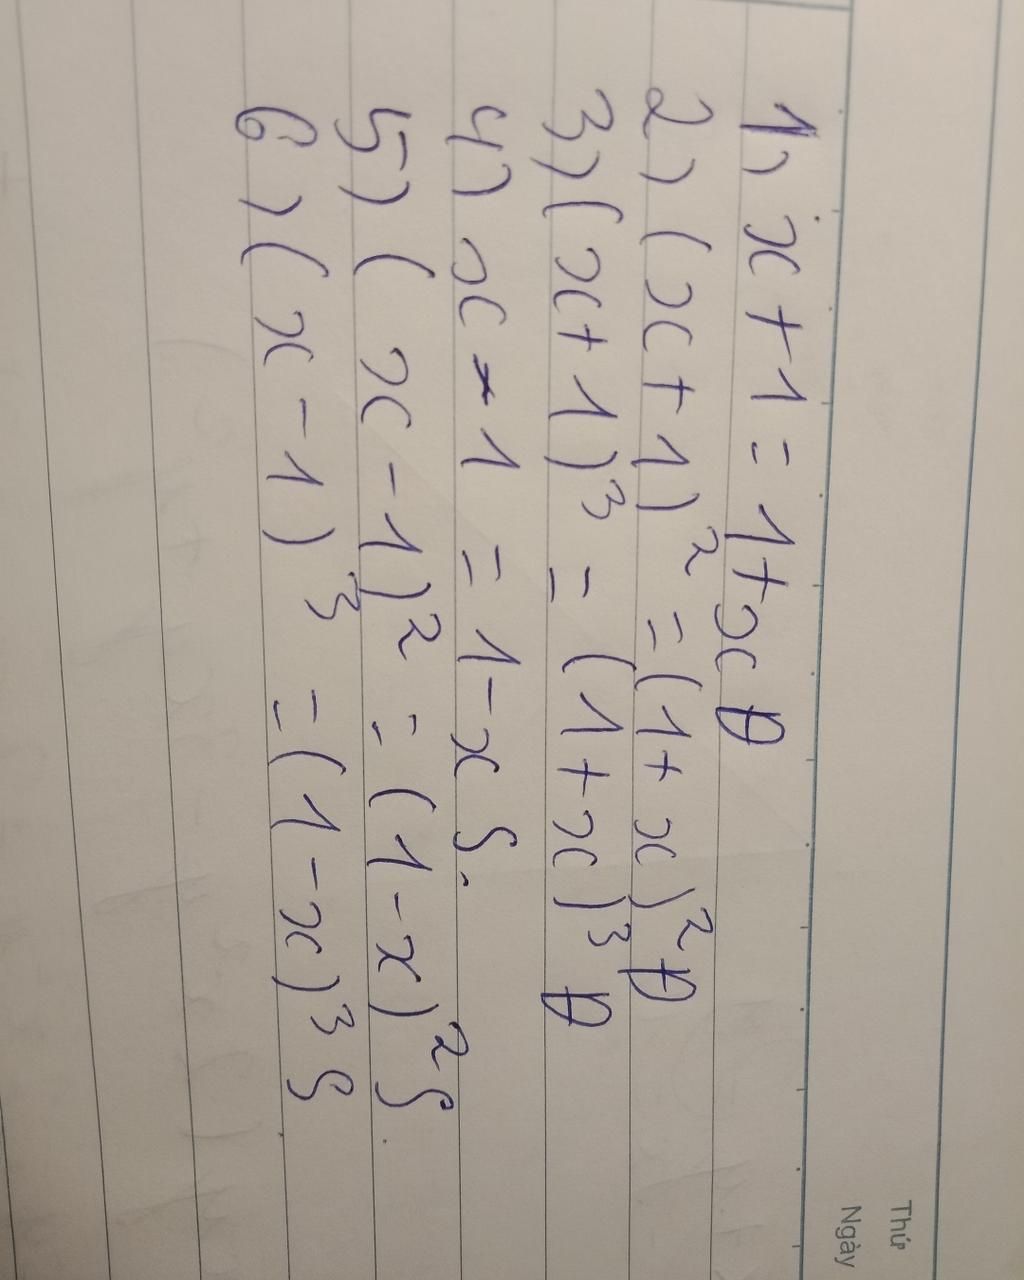 Thứ
Ngày
1) x + 1 = 1 + x Đ
2) (x + 1)² = (1 + x)² Đ
3) (x + 1)³ = (1 + x)³ Đ
4) x - 1 = 1 - x S.
5) (x - 1)² = (1 - x)² S
6) (x - 1)³ = (1 - x)³ S